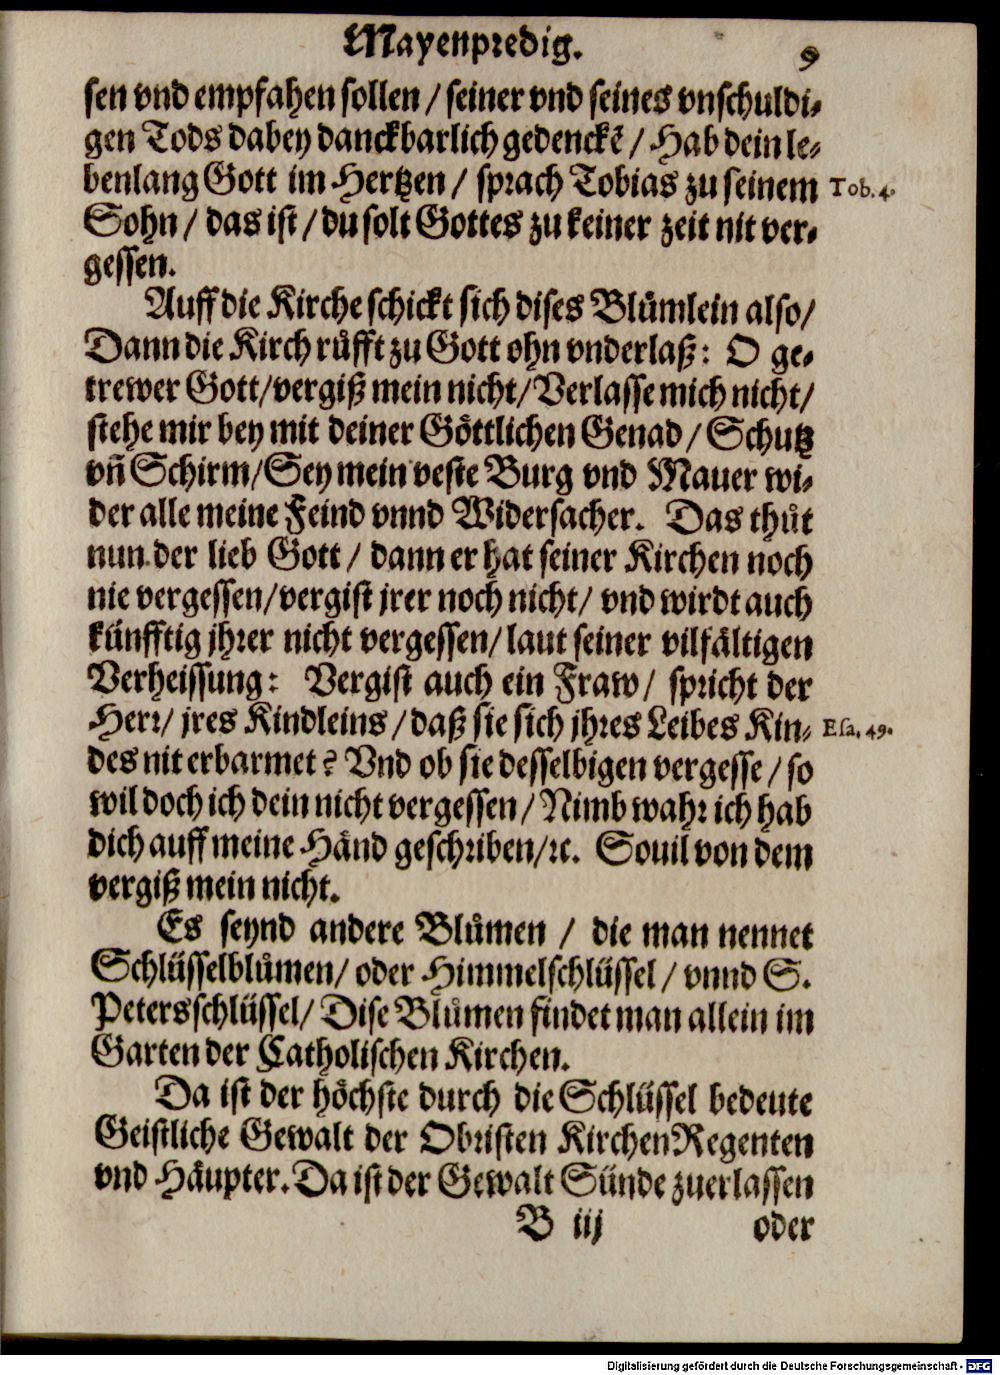 Mayenpredig. 9
sen vnd empfahen sollen / seiner vnd seines vnschuldi-
gen Tods dabey danckbarlich gedenckē / Hab dein le-
benlang Gott im Hertzen / sprach Tobias zu seinem Tob. 4.
Sohn / das ist / du solt Gottes zu keiner zeit nit ver-
gessen.
Auff die Kirche schickt sich dises Blůmlein also /
Dann die Kirch růfft zu Gott ohn vnderlaß: O ge-
trewer Gott / vergiß mein nicht / Verlasse mich nicht /
stehe mir bey mit deiner Göttlichen Genad / Schutz
vñ Schirm / Sey mein veste Burg vnd Mauer wi-
der alle meine Feind vnnd Widersacher. Das thůt
nun der lieb Gott / dann er hat seiner Kirchen noch
nie vergessen / vergist jrer noch nicht / vnd wirdt auch
künfftig jhrer nicht vergessen / laut seiner vilfältigen
Verheissung: Vergist auch ein Fraw / spricht der
Herr / jres Kindleins / daß sie sich jhres Leibes Kin- Esa. 49.
des nit erbarmet? Vnd ob sie desselbigen vergesse / so
wil doch ich dein nicht vergessen / Nimb wahr ich hab
dich auff meine Händ geschriben / ꝛc. Souil von dem
vergiß mein nicht.
Es seynd andere Blůmen / die man nennet
Schlüsselblůmen / oder Himmelschlüssel / vnnd S.
Petersschlüssel / Dise Blůmen findet man allein im
Garten der Catholischen Kirchen.
Da ist der höchste durch die Schlüssel bedeute
Geistliche Gewalt der Obristen KirchenRegenten
vnd Häupter. Da ist der Gewalt Sünde zuerlassen
B iij oder
Digitalisierung gefördert durch die Deutsche Forschungsgemeinschaft - DFG